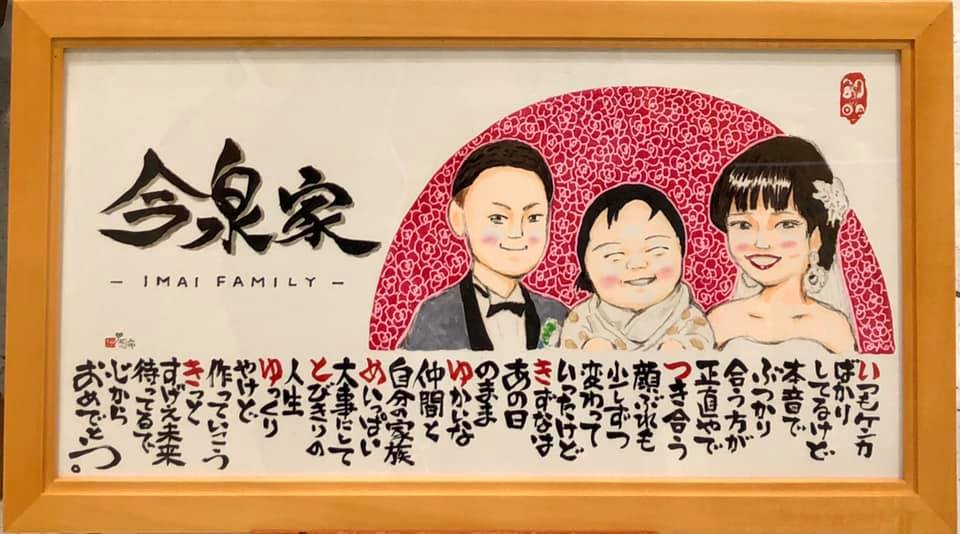 今泉家
- IMAI FAMILY -
いつもケンカ
ばかり
してるけど
本音で
ぶつかり
合う方が
正直やで
つき合う
顔ぶれも
少しずつ
変わって
いったけど
きずなは
あの日
のまま
ゆかいな
仲間と
自分の家族
めいっぱい
大事にして
とびきりの
人生
ゆっくり
やけど
作っていこう
きっと
すげえ未来
待ってるで
心から
おめでとう。